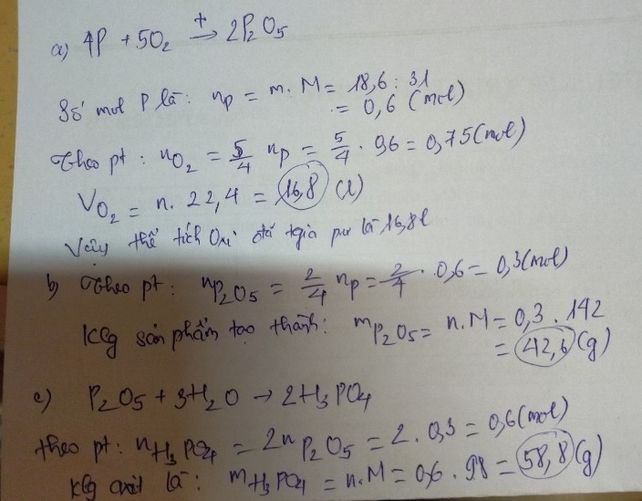 a) 4P + 5O₂ →ᵗ 2P₂O₅
Số mol P là: nP = m. M = 18,6 : 31
= 0,6 (mol)
Theo pt: nO₂ = 5/4 nP = 5/4 . 0,6 = 0,75 (mol)
VO₂ = n. 22,4 = 16,8 (l)
Vậy thể tích Oxi đã tgia pư là 16,8l
b) Theo pt: nP₂O₅ = 2/4 nP = 2/4 . 0,6 = 0,3 (mol)
KLg sản phẩm tạo thành: mP₂O₅ = n. M = 0,3 . 142
= 42,6 (g)
c) P₂O₅ + 3H₂O → 2H₃PO₄
theo pt: nH₃PO₄ = 2nP₂O₅ = 2 . 0,3 = 0,6 (mol)
KLg axit là: mH₃PO₄ = n. M = 0,6 . 98 = 58,8 (g)